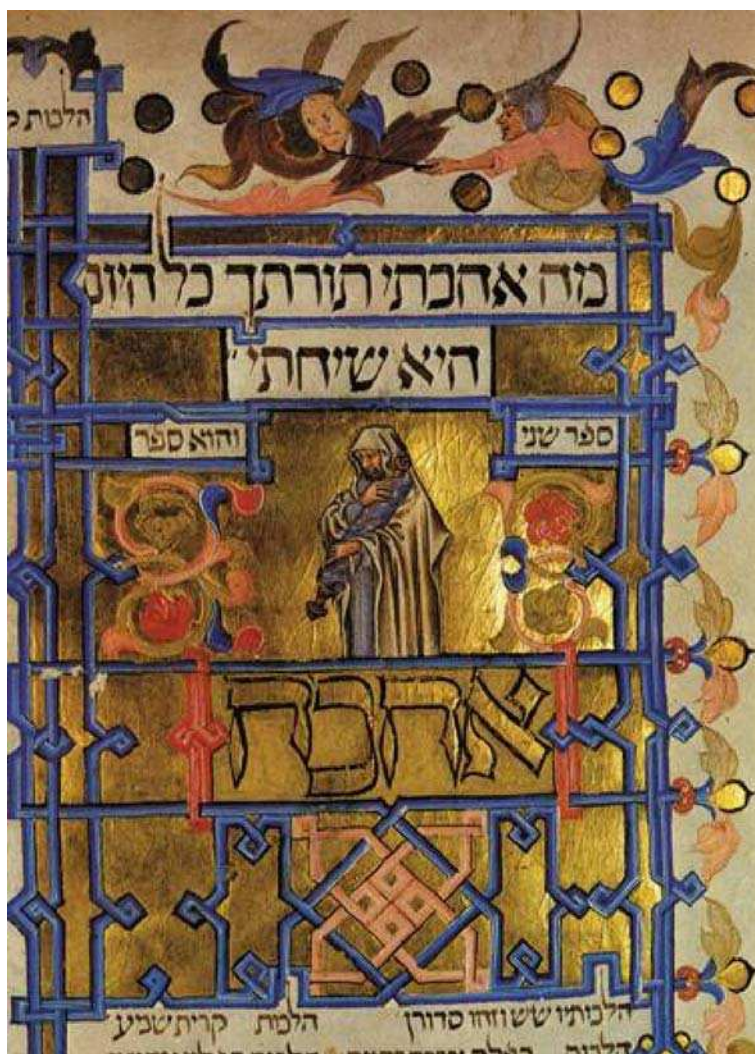 הלכות
מה אהבתי תורתך כל היום
היא שיחתי
ספר שני והוא ספר
אהבה
הלכותיו שש וזהו סדורן הלכות קרית שמע